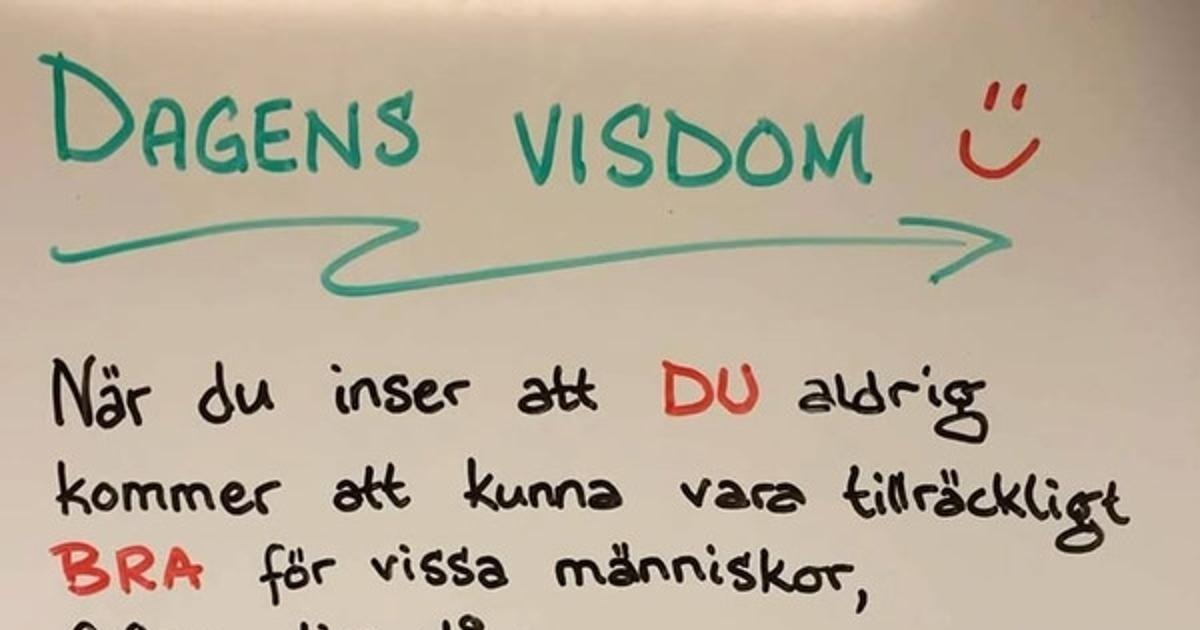 DAGENS VISDOM
När du inser att DU aldrig
kommer att kunna vara tillräckligt
BRA för vissa människor,